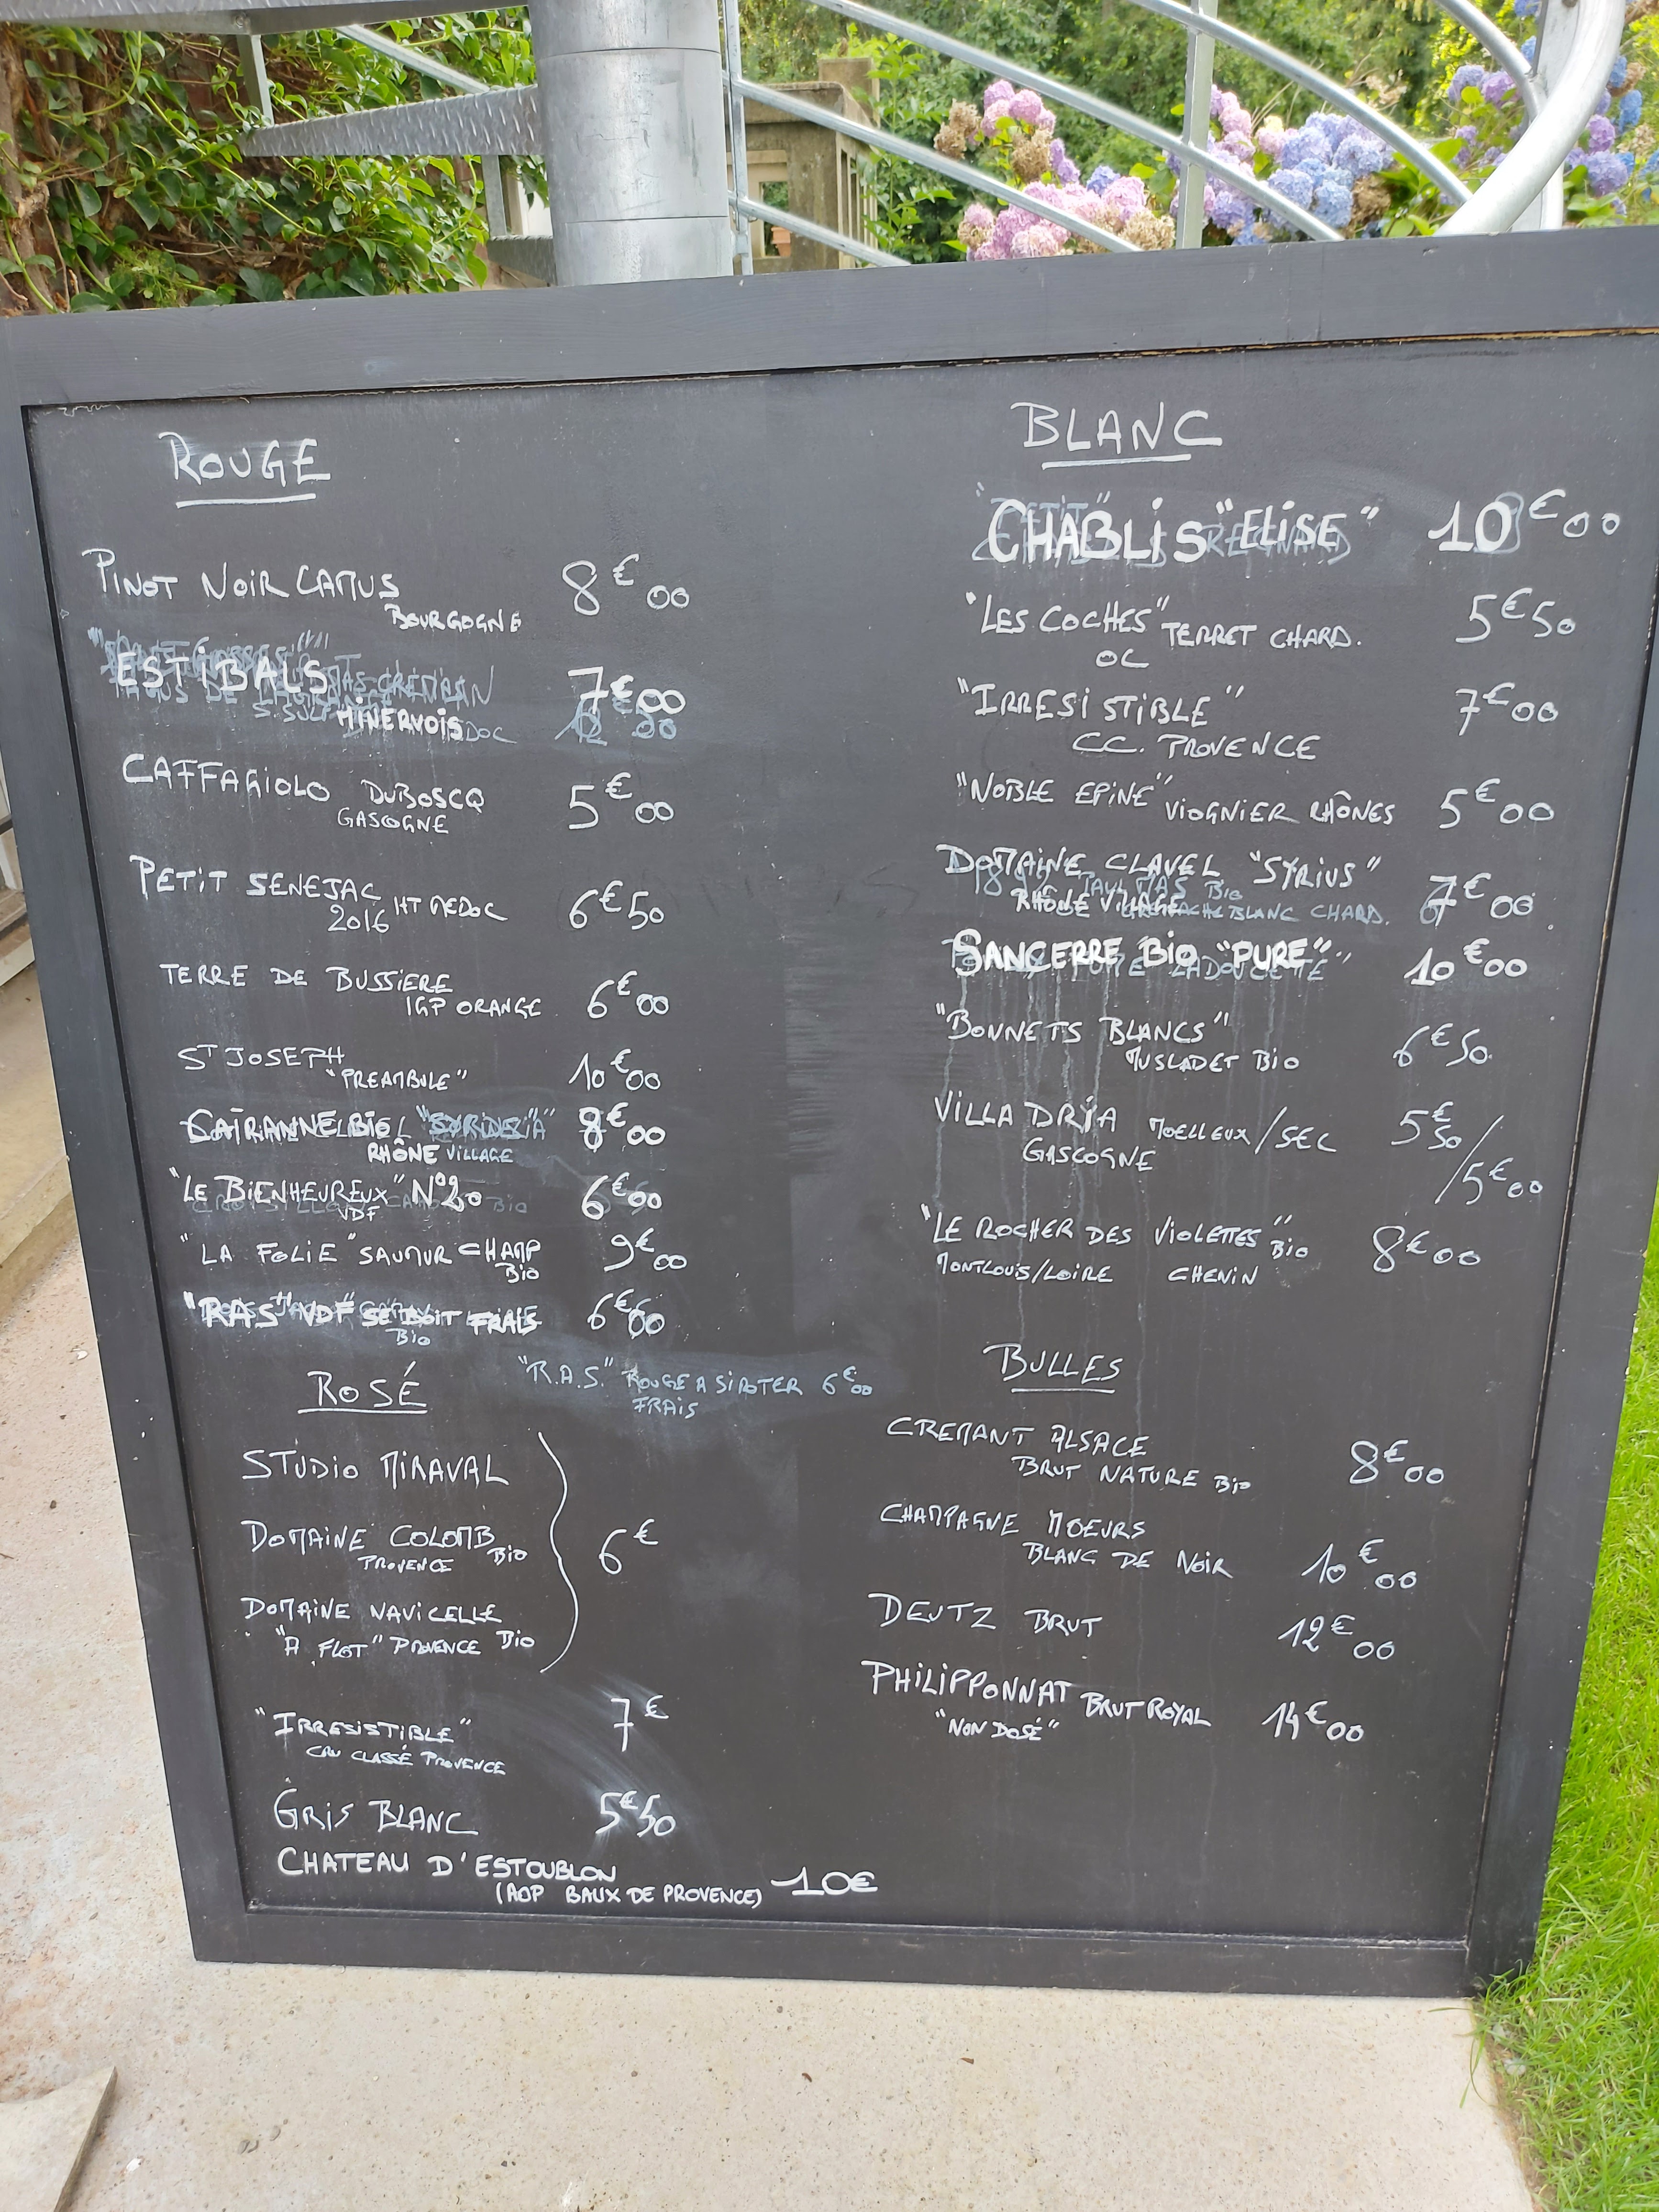 ROUGE
PINOT NOIR CAMUS 8€00
BOURGOGNE
ESTIBALS 7€00
MINERVOIS
CAFFAGIOLO DUBOSCQ 5€00
GASCOGNE
PETIT SENEJAC HT MEDOC 6€50
2016
TERRE DE BUSSIERE
IGP ORANGE 6€00
ST JOSEPH
"PREAMBULE" 10€00
CAIRANNE BIO 8€00
RHÔNE VILLAGE
"LE BIENHEUREUX" N°20 6€00
VDF
"LA FOLIE" SAUMUR CHAMP 9€00
BIO
"RAS" VDF SE BOIT FRAIS 6€00
BIO
"R.A.S." ROUGE A SIROTER 6€00
FRAIS
ROSÉ
STUDIO MIRAVAL
DOMAINE COLOMB BIO 6€
PROVENCE
DOMAINE NAVICELLE
"A FLOT" PROVENCE BIO
"IRRESISTIBLE" 7€
CRU CLASSÉ PROVENCE
GRIS BLANC 5€50
CHATEAU D'ESTOUBLON
(AOP BAUX DE PROVENCE) 10€
BLANC
CHABLIS "ELISE" 10€00
"LES COCHES" TERRET CHARD. 5€50
OC
"IRRESISTIBLE" 7€00
CC. PROVENCE
"NOBLE EPINE" VIOGNIER RHÔNES 5€00
DOMAINE CLAVEL "SYRIUS" 7€00
RHÔNE VILLAGE
SANCERRE BIO "PURE" 10€00
"BONNETS BLANCS" 6€50
MUSCADET BIO
VILLA DRIA MOELLEUX/SEC 5€50/5€00
GASCOGNE
"LE ROCHER DES VIOLETTES" BIO 8€00
MONTLOUIS/LOIRE CHENIN
BULLES
CREMANT ALSACE 8€00
BRUT NATURE BIO
CHAMPAGNE MOEURS
BLANC DE NOIR 10€00
DEUTZ BRUT 12€00
PHILIPPONNAT BRUT ROYAL 14€00
"NON DOSÉ"